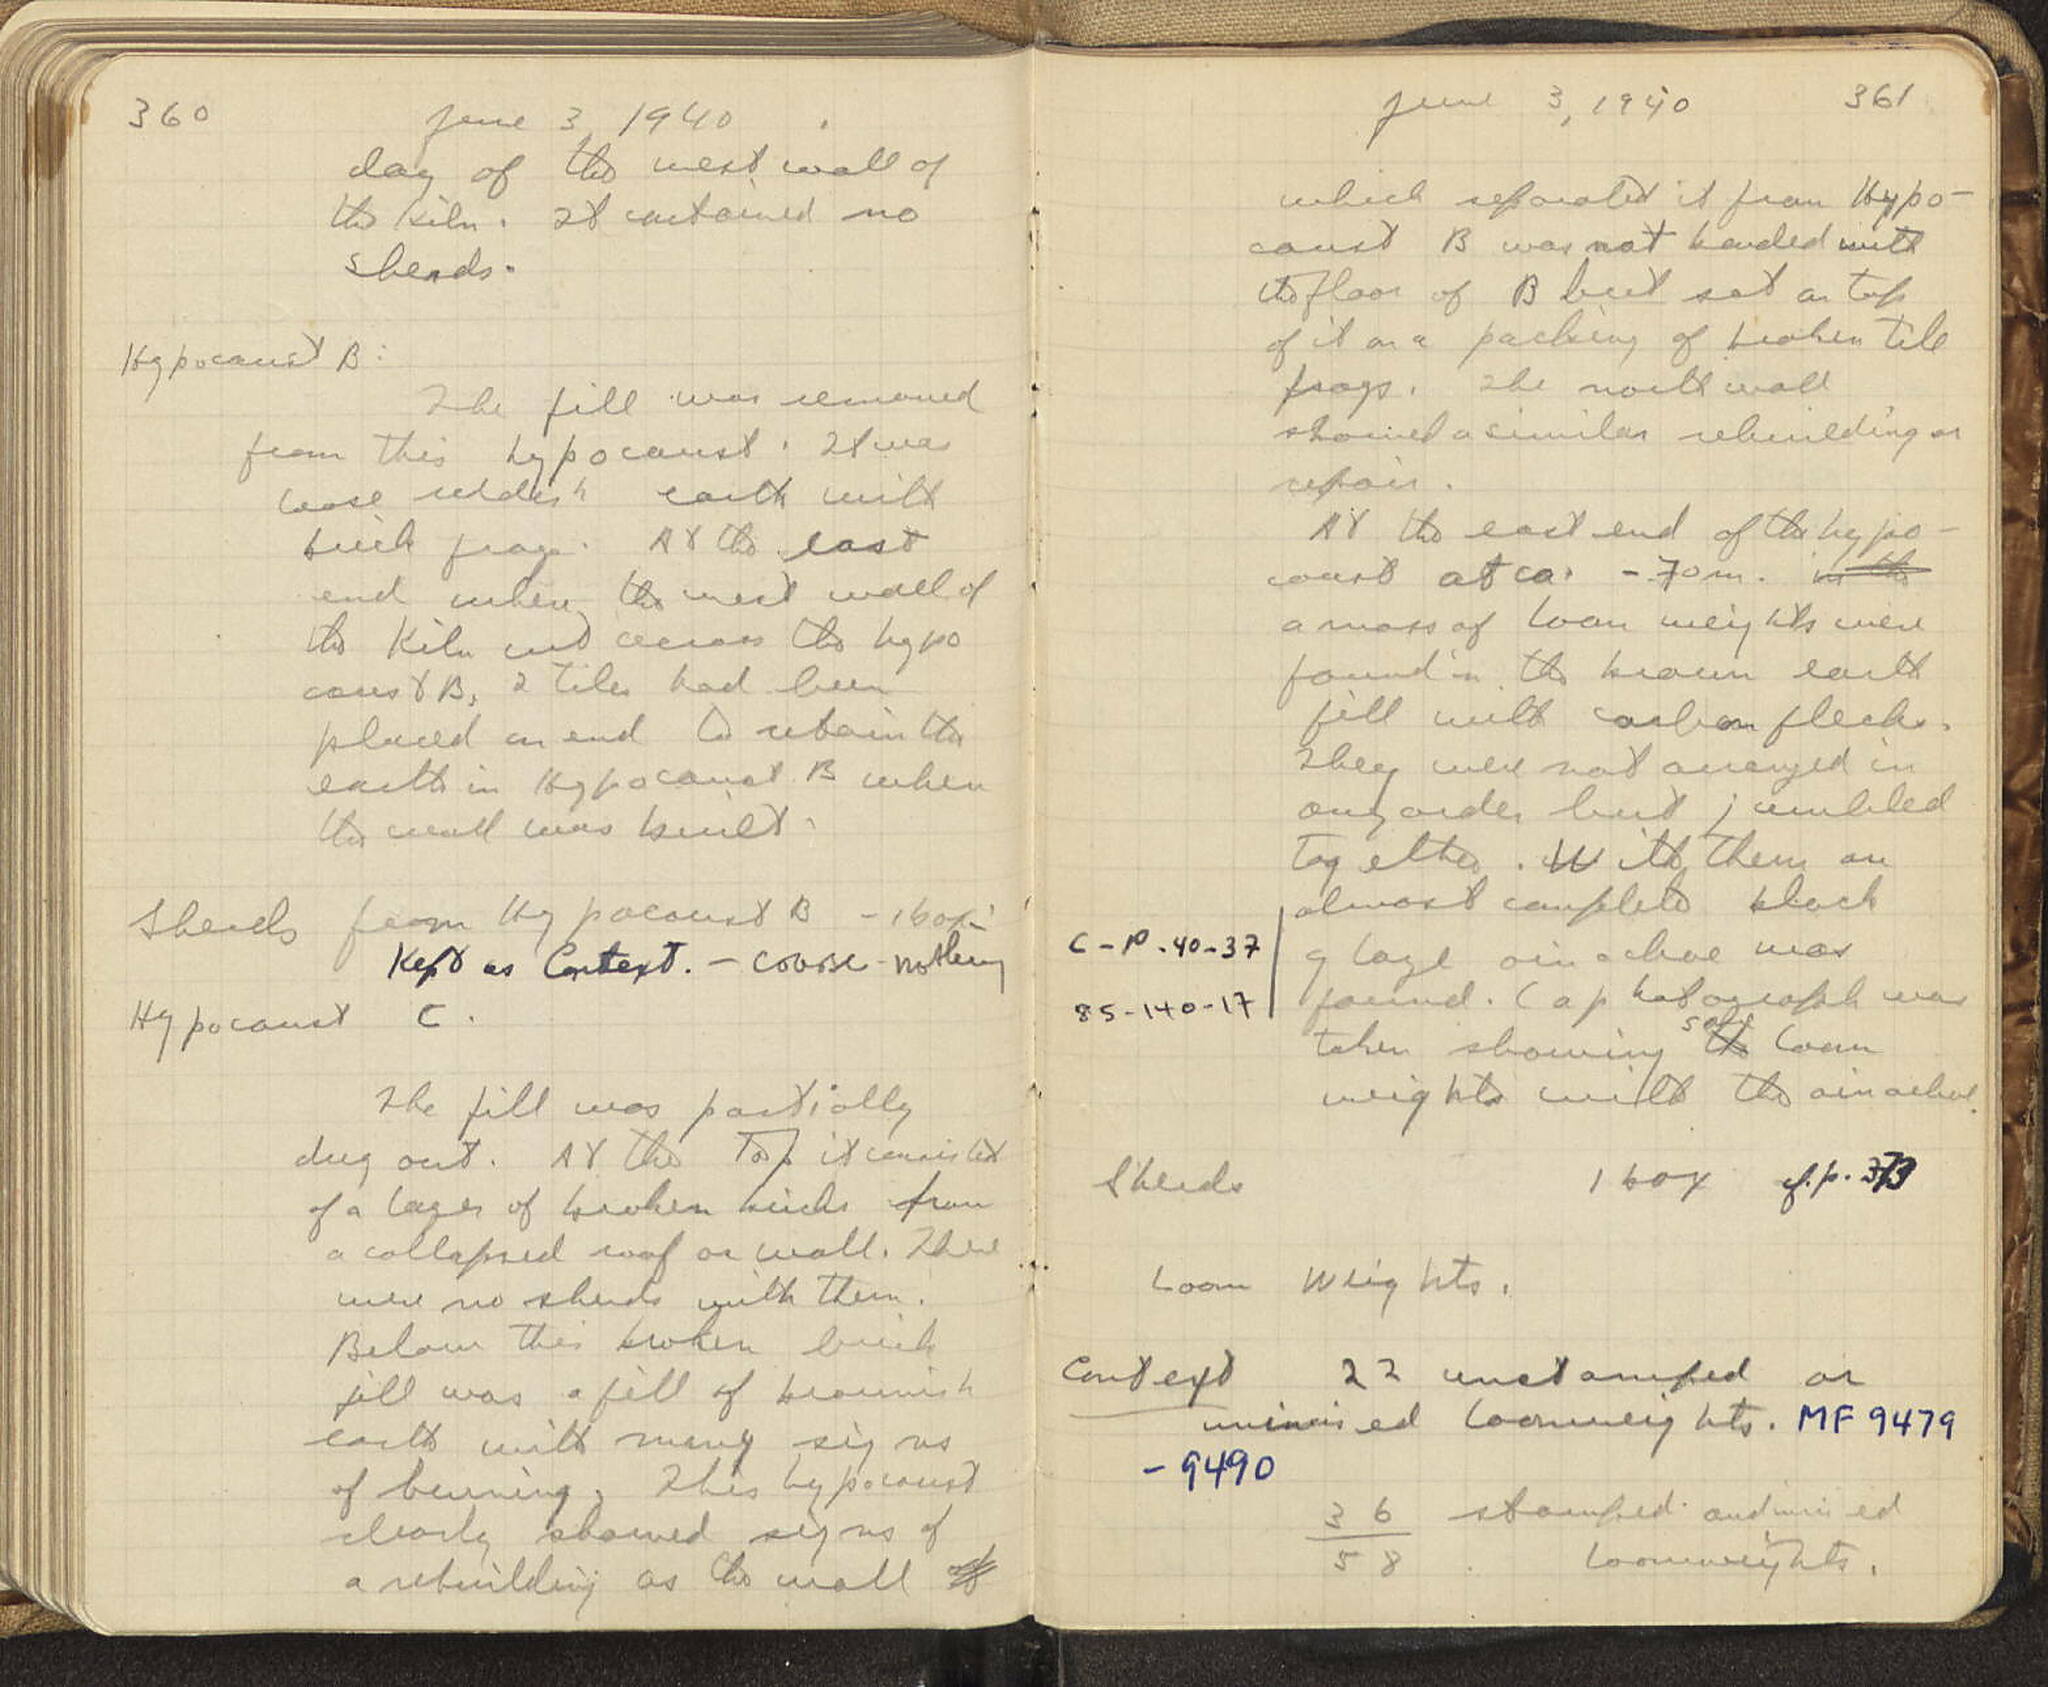 360
June 3, 1940
day of the west wall of
the kiln. It contained no
sherds.
Hypocaust B:
The fill was removed
from this hypocaust. It was
loose reddish earth with
brick frags. At the east
end where the west wall of
the kiln cut across the hypo
caust B, 2 tiles had been
placed on end to retain the
earth in Hypocaust B when
the wall was built.
Sherds from Hypocaust B - 1 box
Kept as Context. - coarse - nothing
Hypocaust C.
The fill was partially
dug out. At the top it consisted
of a layer of broken bricks from
a collapsed roof or wall. There
were no sherds with them.
Below this broken brick
fill was a fill of brownish
earth with many signs
of burning. This hypocaust
clearly showed signs of
a rebuilding as the wall of
June 3, 1940
361
which separated it from Hypo-
caust B was not bonded with
the floor of B but set on top
of it on a packing of broken tile
frags. The north wall
showed a similar rebuilding or
repair.
At the east end of the hypo-
caust at ca. -.70m. in the
a mass of loom weights were
found in the brown earth
fill with carbon flecks.
They were not arranged in
any order but jumbled
together. With them an
almost complete black
C-P-40-37
glaze oinochoe was
85-140-17
found. (a photograph was
taken showing the some loom
weights with the oinochoe.
Sherds 1 box cf. p. 373
Loom Weights.
Context 22 unstamped or
unincised loomweights. MF 9479
- 9490
36 stamped and incised
58 loomweights.